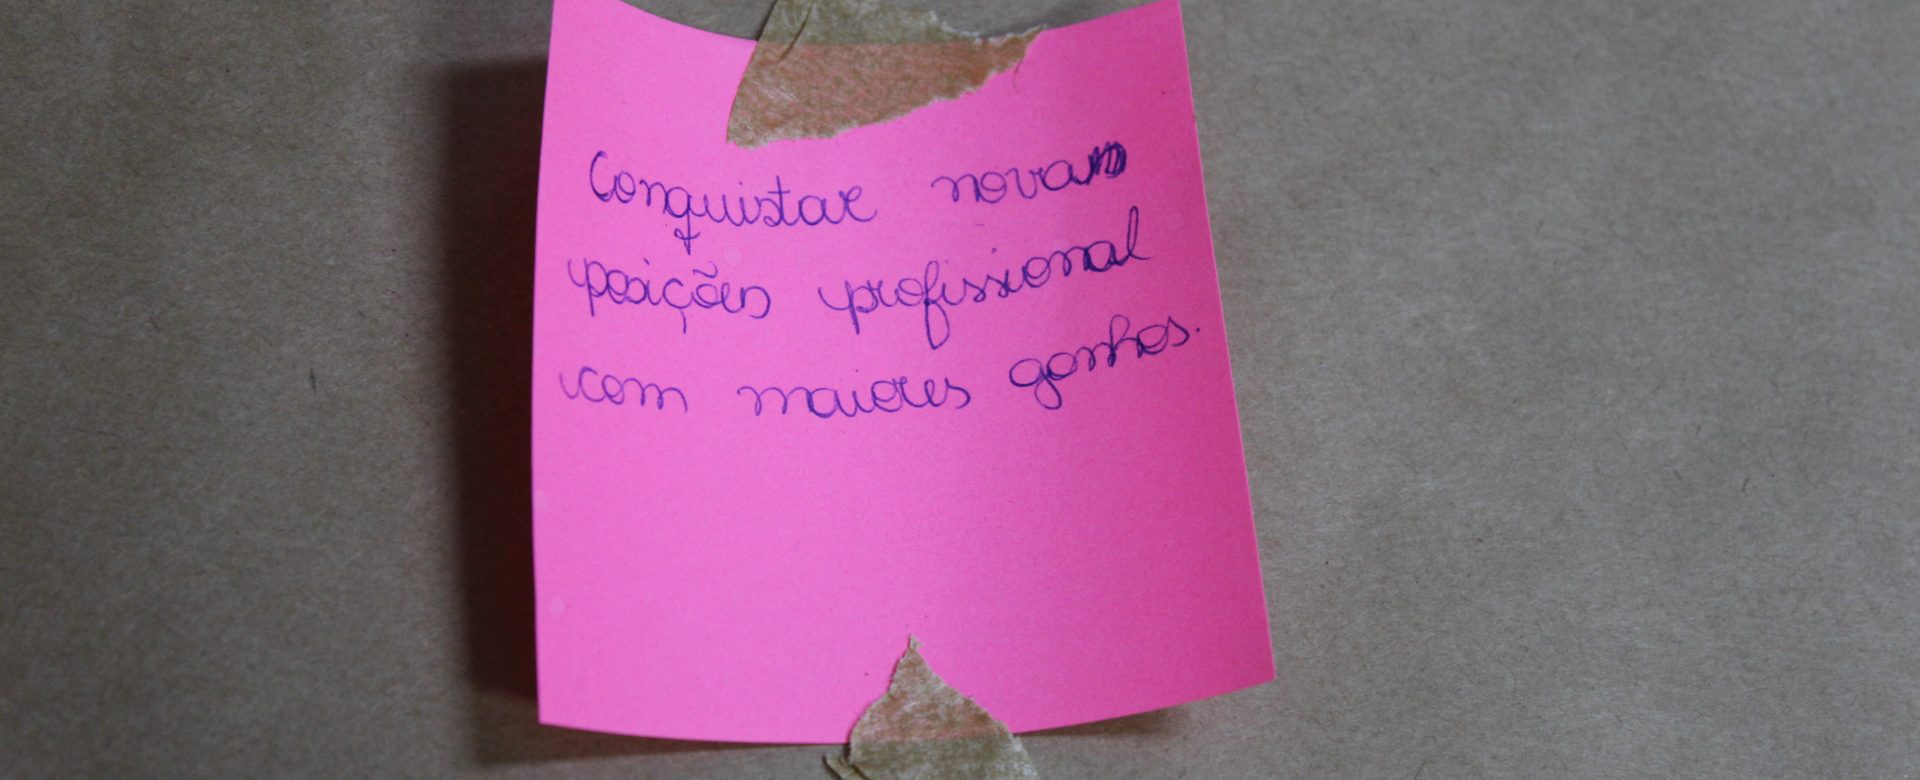 Conquistar novas
posições profissional
com maiores ganhos.